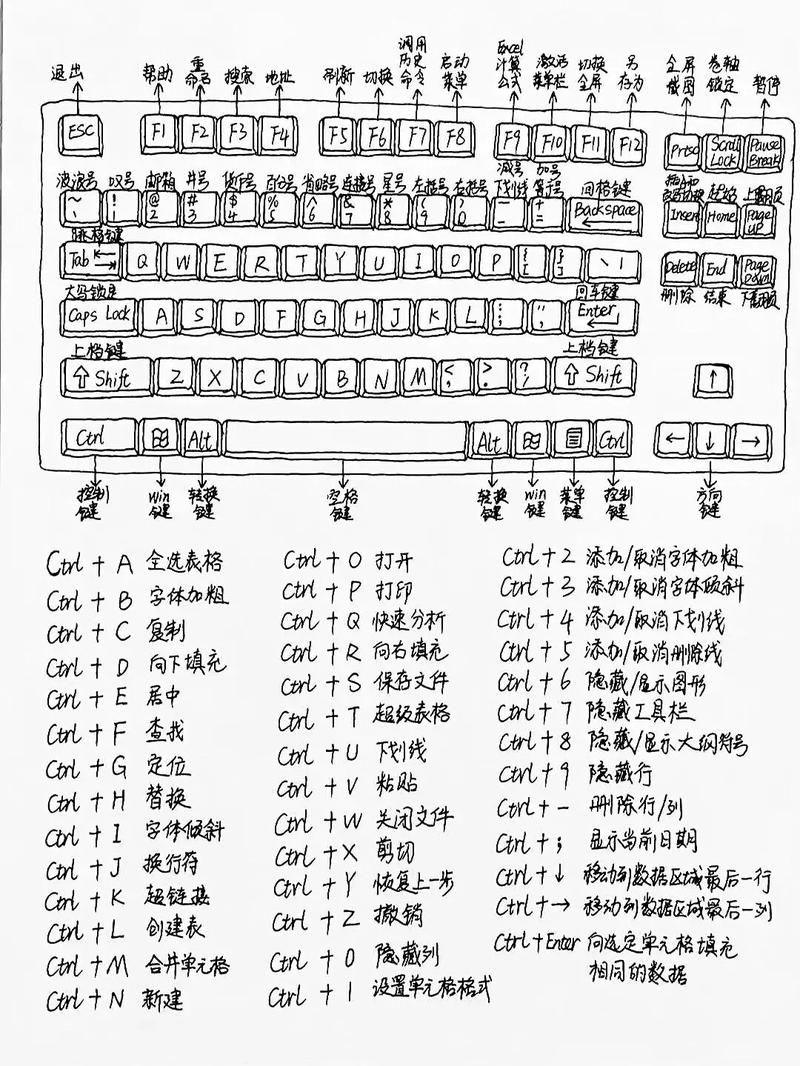 退出 帮助 重命名 搜索 地址 刷新 切换 调用历史命令 启动菜单 Excel计算公式 激活菜单栏 切换全屏 另存为 全屏截图 卷轴锁定 暂停
ESC F1 F2 F3 F4 F5 F6 F7 F8 F9 F10 F11 F12 Prtsc Scroll Lock Pause Break
波浪号 叹号 邮箱 井号 货币号 百分号 省略号 连接号 星号 左括号 右括号 减号下划线 加号等于号 回格键 起始 上翻页
~ ` ! 1 @ 2 # 3 $ 4 % 5 ^ 6 & 7 * 8 ( 9 ) 0 — - + = Backspace Insert Home Page UP
跳格键
Tab Q W E R T Y U I O P { [ } ] \ | Delete End Page Down
删除 结束 下翻页
大写锁定 回车键
Caps Lock A S D F G H J K L : ; " ' Enter
上档键 上档键
⇧ Shift Z X C V B N M < , > . ? / ⇧ Shift ↑
Ctrl Alt Alt Ctrl ← ↓ →
控制键 win键 转换键 空格键 转换键 win键 菜单键 控制键 方向键
Ctrl + A 全选表格
Ctrl + B 字体加粗
Ctrl + C 复制
Ctrl + D 向下填充
Ctrl + E 居中
Ctrl + F 查找
Ctrl + G 定位
Ctrl + H 替换
Ctrl + I 字体倾斜
Ctrl + J 换行符
Ctrl + K 超链接
Ctrl + L 创建表
Ctrl + M 合并单元格
Ctrl + N 新建
Ctrl + O 打开
Ctrl + P 打印
Ctrl + Q 快速分析
Ctrl + R 向右填充
Ctrl + S 保存文件
Ctrl + T 超级表格
Ctrl + U 下划线
Ctrl + V 粘贴
Ctrl + W 关闭文件
Ctrl + X 剪切
Ctrl + Y 恢复上一步
Ctrl + Z 撤销
Ctrl + 0 隐藏列
Ctrl + 1 设置单元格格式
Ctrl + 2 添加/取消字体加粗
Ctrl + 3 添加/取消字体倾斜
Ctrl + 4 添加/取消下划线
Ctrl + 5 添加/取消删除线
Ctrl + 6 隐藏/显示图形
Ctrl + 7 隐藏工具栏
Ctrl + 8 隐藏/显示大纲符号
Ctrl + 9 隐藏行
Ctrl + - 删除行/列
Ctrl + ; 显示当前日期
Ctrl + ↓ 移动到数据区域最后一行
Ctrl + → 移动到数据区域最后一列
Ctrl + Enter 向选定单元格填充
相同的数据